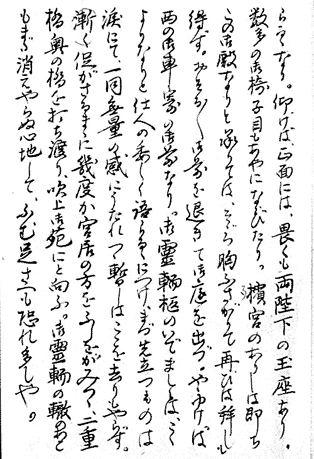 らうなり。仰げば正面には、畏くも両陛下の玉座あり。
数多の御椅子目もあやにならびたり。殯宮のあらしは即ち
この御殿なりと承りては、そぞろ胸ふさがりて再びは拝しも
得ず。おそるおそる御前を退きて御庭を出づ。やゝゆけば
西の御車寄の御前なり。御霊轜柩のいでましゝは、こゝ
よりなりと仕人の委しく語らるゝにつけ、まづ先立つものは
涙にて、一同無量の感にうたれつゝ暫しはこゝを去りもやらず。
漸く促がさるゝまゝに幾度か宮居の方をふしをがみつゝ、二重
橋の奥の橋を打ち渡り、吹上御苑にと向ふ。御霊轜の轍のあと
もまだ消えやらぬ心地して、ふむ足さへも恐れ多しや。